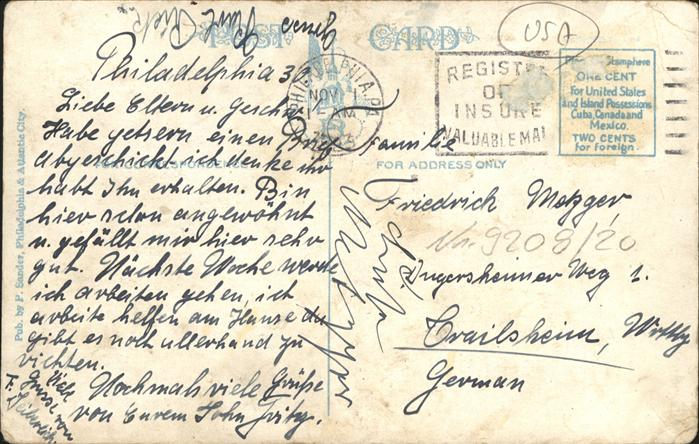 POST CARD
USA
Philadelphia 30.
Liebe Eltern u. Geschw.
Habe gestern einen Brief
abgeschickt ich denke ihr
habt Ihn erhalten. Bin
hier schon angewöhnt
u. gefällt mir hier sehr
gut. Nächste Woche werde
ich arbeiten gehen, ich
arbeite helfen am Hause da
gibt es noch allerhand zu
richten.
Nochmals viele Grüße
von Eurem Sohn Fritz.
PHILADELPHIA, PA.
NOV 1
AM
REGISTER
OR
INSURE
VALUABLE MAIL
ONE CENT
for United States
and Island Possessions
Cuba, Canada and
Mexico.
TWO CENTS
for foreign.
FOR ADDRESS ONLY
Familie
Friedrich Metzger
No. 9208/20
Ingersheimer Weg 1.
Crailsheim, Wrttbg
German
Pub. by P. Sander, Philadelphia & Atlantic City.